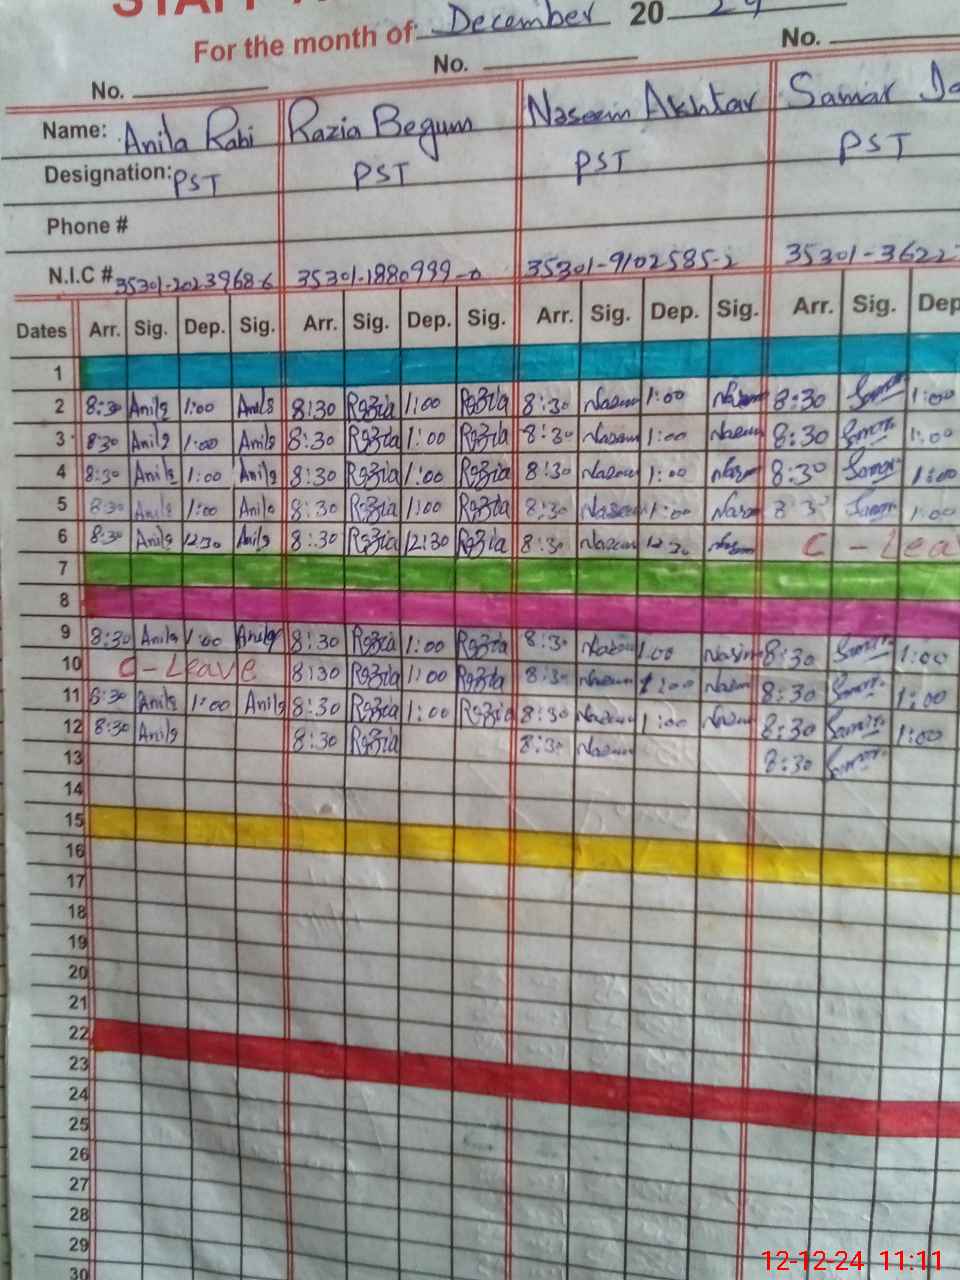 STAFF
For the month of December 20 24
No. No. No.
Name: Anila Rabi Razia Begum Naseem Akhtar Samar
Designation: PST PST PST PST
Phone #
N.I.C # 35301-2023968-6 35301-1880999-0 35301-9102585-2 35301-3622
Dates Arr. Sig. Dep. Sig. Arr. Sig. Dep. Sig. Arr. Sig. Dep. Sig. Arr. Sig. Dep
1
2 8:30 Anila 1:00 Anila 8:30 Razia 1:00 Razia 8:30 Naseem 1:00 Naseem 8:30 Samar 1:00
3 8:30 Anila 1:00 Anila 8:30 Razia 1:00 Razia 8:30 Naseem 1:00 Naseem 8:30 Samar 1:00
4 8:30 Anila 1:00 Anila 8:30 Razia 1:00 Razia 8:30 Naseem 1:00 Naseem 8:30 Samar 1:00
5 8:30 Anila 1:00 Anila 8:30 Razia 1:00 Razia 8:30 Naseem 1:00 Naseem 8:30 Samar 1:00
6 8:30 Anila 12:30 Anila 8:30 Razia 12:30 Razia 8:30 Naseem 12:30 Naseem C-Lea
7
8
9 8:30 Anila 1:00 Anila 8:30 Razia 1:00 Razia 8:30 Naseem 1:00 Naseem 8:30 Samar 1:00
10 C-Leave 8:30 Razia 1:00 Razia 8:30 Naseem 1:00 Naseem 8:30 Samar 1:00
11 8:30 Anila 1:00 Anila 8:30 Razia 1:00 Razia 8:30 Naseem 1:00 Naseem 8:30 Samar 1:00
12 8:30 Anila 8:30 Razia 8:30 Naseem 8:30 Samar
13
14
15
16
17
18
19
20
21
22
23
24
25
26
27
28
29
30
12-12-24 11:11